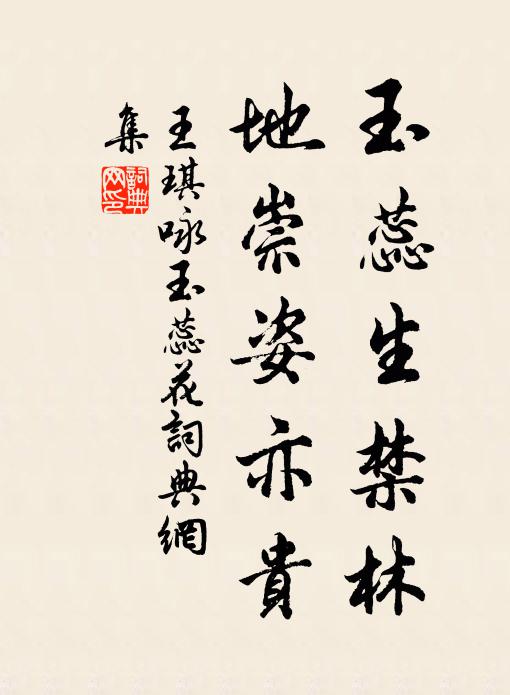 玉蕊生禁林
地崇姿亦貴
王琪咏玉蕊花詞典網
集
詞典
网印